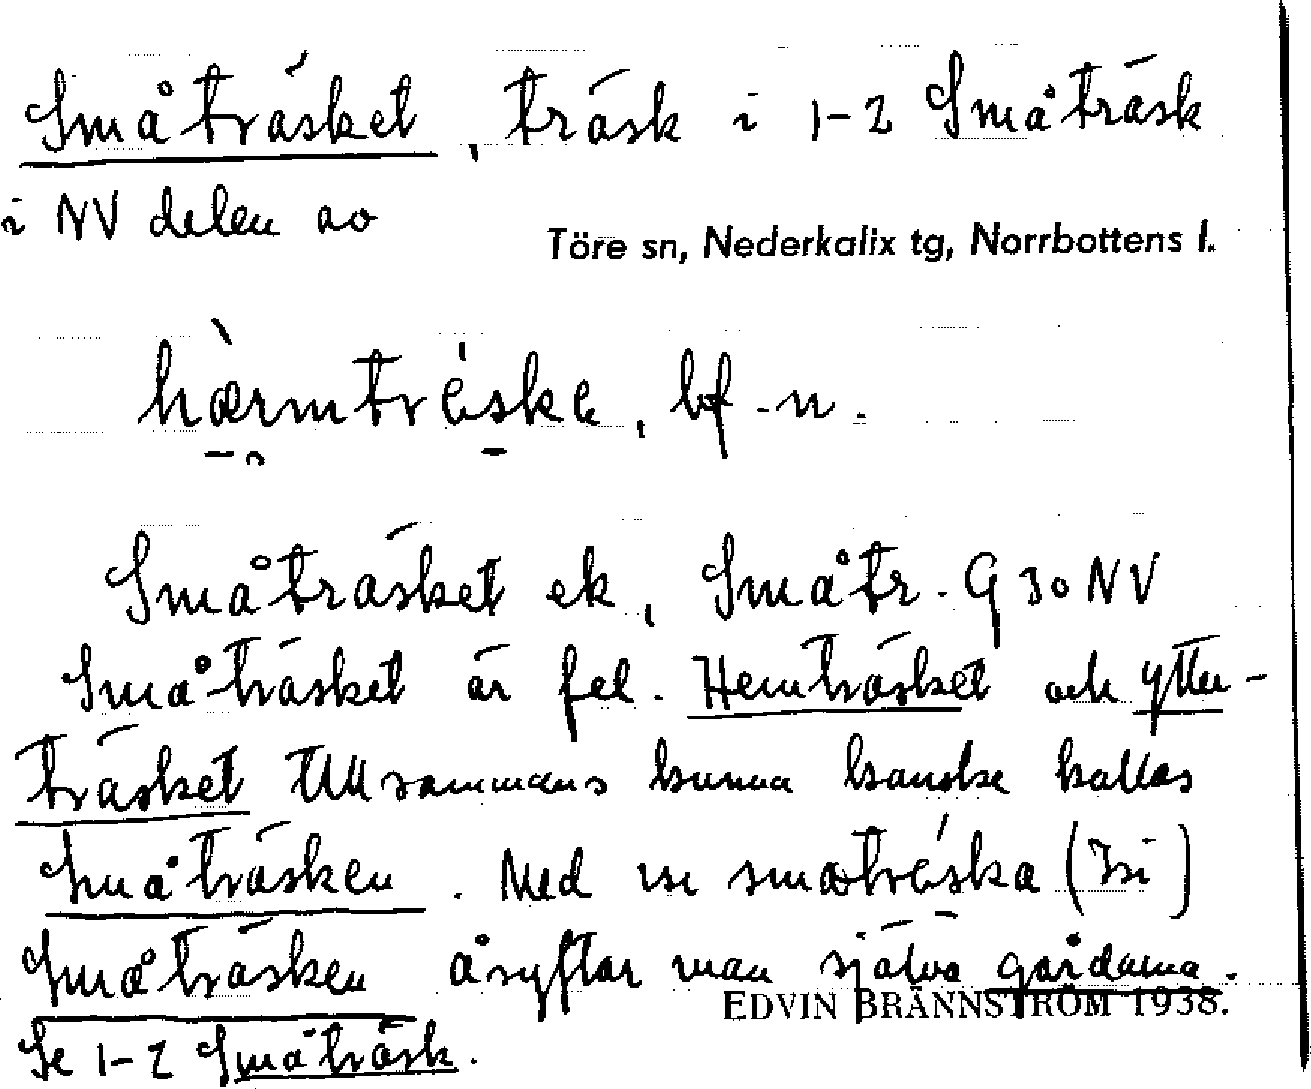 Småträsket, träsk i 1-2 Småträsk
i NV delen av
Töre sn, Nederkalix tg, Norrbottens l.
hærmtréske, bf. n.
Småträsket ek, Småtr. G 30 NV
Småträsket är fel. Hemträsket och Ytter-
träsket tillsammans kunna kanske kallas
Småträsken. Med smɑtréska
Småträsken åsyftar man själva gårdarna.
EDVIN BRÄNNSTRÖM 1938.
Se 1-2 Småträsk.